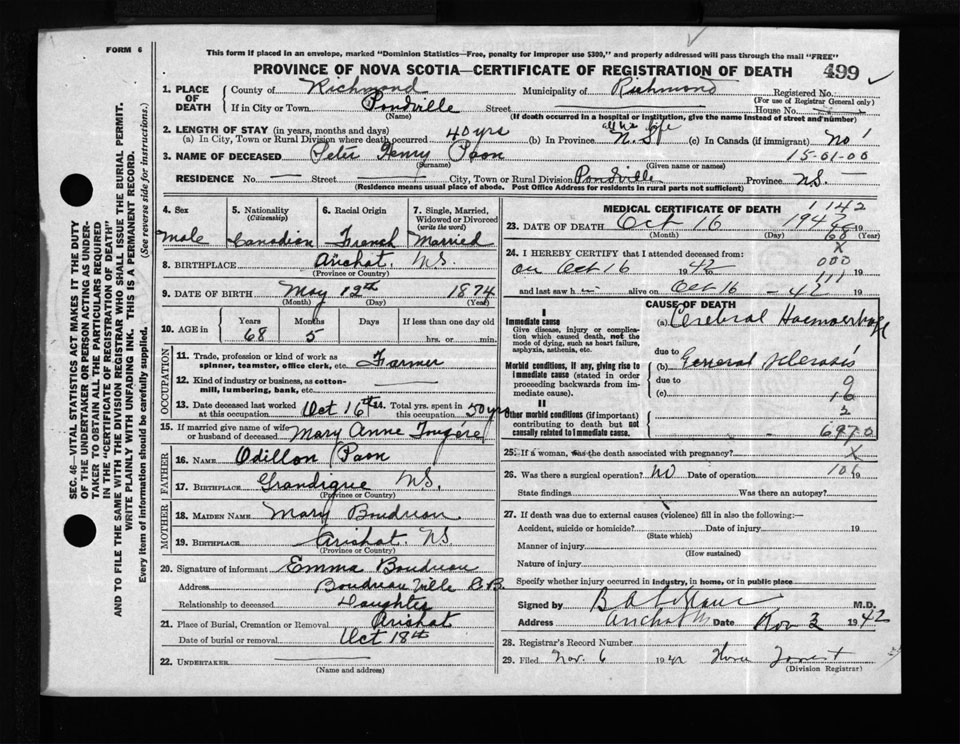 FORM 6
This form if placed in an envelope, marked "Dominion Statistics—Free, penalty for improper use $300," and properly addressed will pass through the mail "FREE"
PROVINCE OF NOVA SCOTIA—CERTIFICATE OF REGISTRATION OF DEATH 499
1. PLACE OF DEATH County of Richmond Municipality of Richmond Registered No.
(For use of Registrar General only)
If in City or Town Pondville Street House No.
(Name) (If death occurred in a hospital or institution, give the name instead of street and number)
2. LENGTH OF STAY (in years, months and days)
(a) In City, Town or Rural Division where death occurred 40 yrs (b) In Province all his life N.S. (c) In Canada (if immigrant) no
3. NAME OF DECEASED Peter Henry Paon 15-01-00
(Surname) (Given name or names)
RESIDENCE No. — Street — City, Town or Rural Division Pondville Province N.S.
(Residence means usual place of abode. Post Office Address for residents in rural parts not sufficient)
SEC. 46—VITAL STATISTICS ACT MAKES IT THE DUTY
OF THE UNDERTAKER OR PERSON ACTING AS UNDER-
TAKER TO OBTAIN ALL THE PARTICULARS REQUIRED
IN THE "CERTIFICATE OF REGISTRATION OF DEATH"
AND TO FILE THE SAME WITH THE DIVISION REGISTRAR WHO SHALL ISSUE THE BURIAL PERMIT.
WRITE PLAINLY WITH UNFADING INK. THIS IS A PERMANENT RECORD.
Every item of information should be carefully supplied. (See reverse side for instructions.)
4. Sex 5. Nationality (Citizenship) 6. Racial Origin 7. Single, Married, Widowed or Divorced (write the word)
Male Canadian French Married
8. BIRTHPLACE Arichat, N.S.
(Province or Country)
9. DATE OF BIRTH May 12th 1874
(Month) (Day) (Year)
10. AGE in Years Months Days If less than one day old
68 5 hrs. or min.
OCCUPATION
11. Trade, profession or kind of work as spinner, teamster, office clerk, etc. Farmer
12. Kind of industry or business, as cotton-mill, lumbering, bank, etc. —
13. Date deceased last worked at this occupation Oct 16th 14. Total yrs. spent in this occupation 50 yrs
15. If married give name of wife or husband of deceased Mary Anne Fougére
FATHER
16. NAME Odillon Paon
17. BIRTHPLACE Grandigue N.S.
(Province or Country)
MOTHER
18. MAIDEN NAME Mary Boudreau
19. BIRTHPLACE Arichat N.S.
(Province or Country)
20. Signature of informant Emma Boudreau
Address Boudreau Ville C.B.
Relationship to deceased Daughter
21. Place of Burial, Cremation or Removal Arichat
Date of burial or removal Oct 18th
22. UNDERTAKER
(Name and address)
MEDICAL CERTIFICATE OF DEATH 1142
23. DATE OF DEATH Oct 16 1942 19
(Month) (Day) (Year)
68
24. I HEREBY CERTIFY that I attended deceased from: X
on Oct 16 1942 to 000
111
and last saw h alive on Oct 16 - 42 19
CAUSE OF DEATH
I
Immediate cause (a) Cerebral Haemorrhage
Give disease, injury or complication which caused death, not the mode of dying, such as heart failure, asphyxia, asthenia, etc.
due to
Morbid conditions, if any, giving rise to immediate cause (stated in order proceeding backwards from immediate cause). (b) General Sclerosis
due to 9
(c) 16
2
II
Other morbid conditions (if important) contributing to death but not causally related to immediate cause. 6970
25. If a woman, was the death associated with pregnancy? X
26. Was there a surgical operation? No Date of operation 106 19
State findings Was there an autopsy?
27. If death was due to external causes (violence) fill in also the following:—
Accident, suicide or homicide? Date of injury 19
(State which)
Manner of injury
(How sustained)
Nature of injury
Specify whether injury occurred in industry, in home, or in public place
Signed by M.D.
Address Arichat Date Nov 3 1942
28. Registrar's Record Number
29. Filed Nov. 6 1942
(Division Registrar)